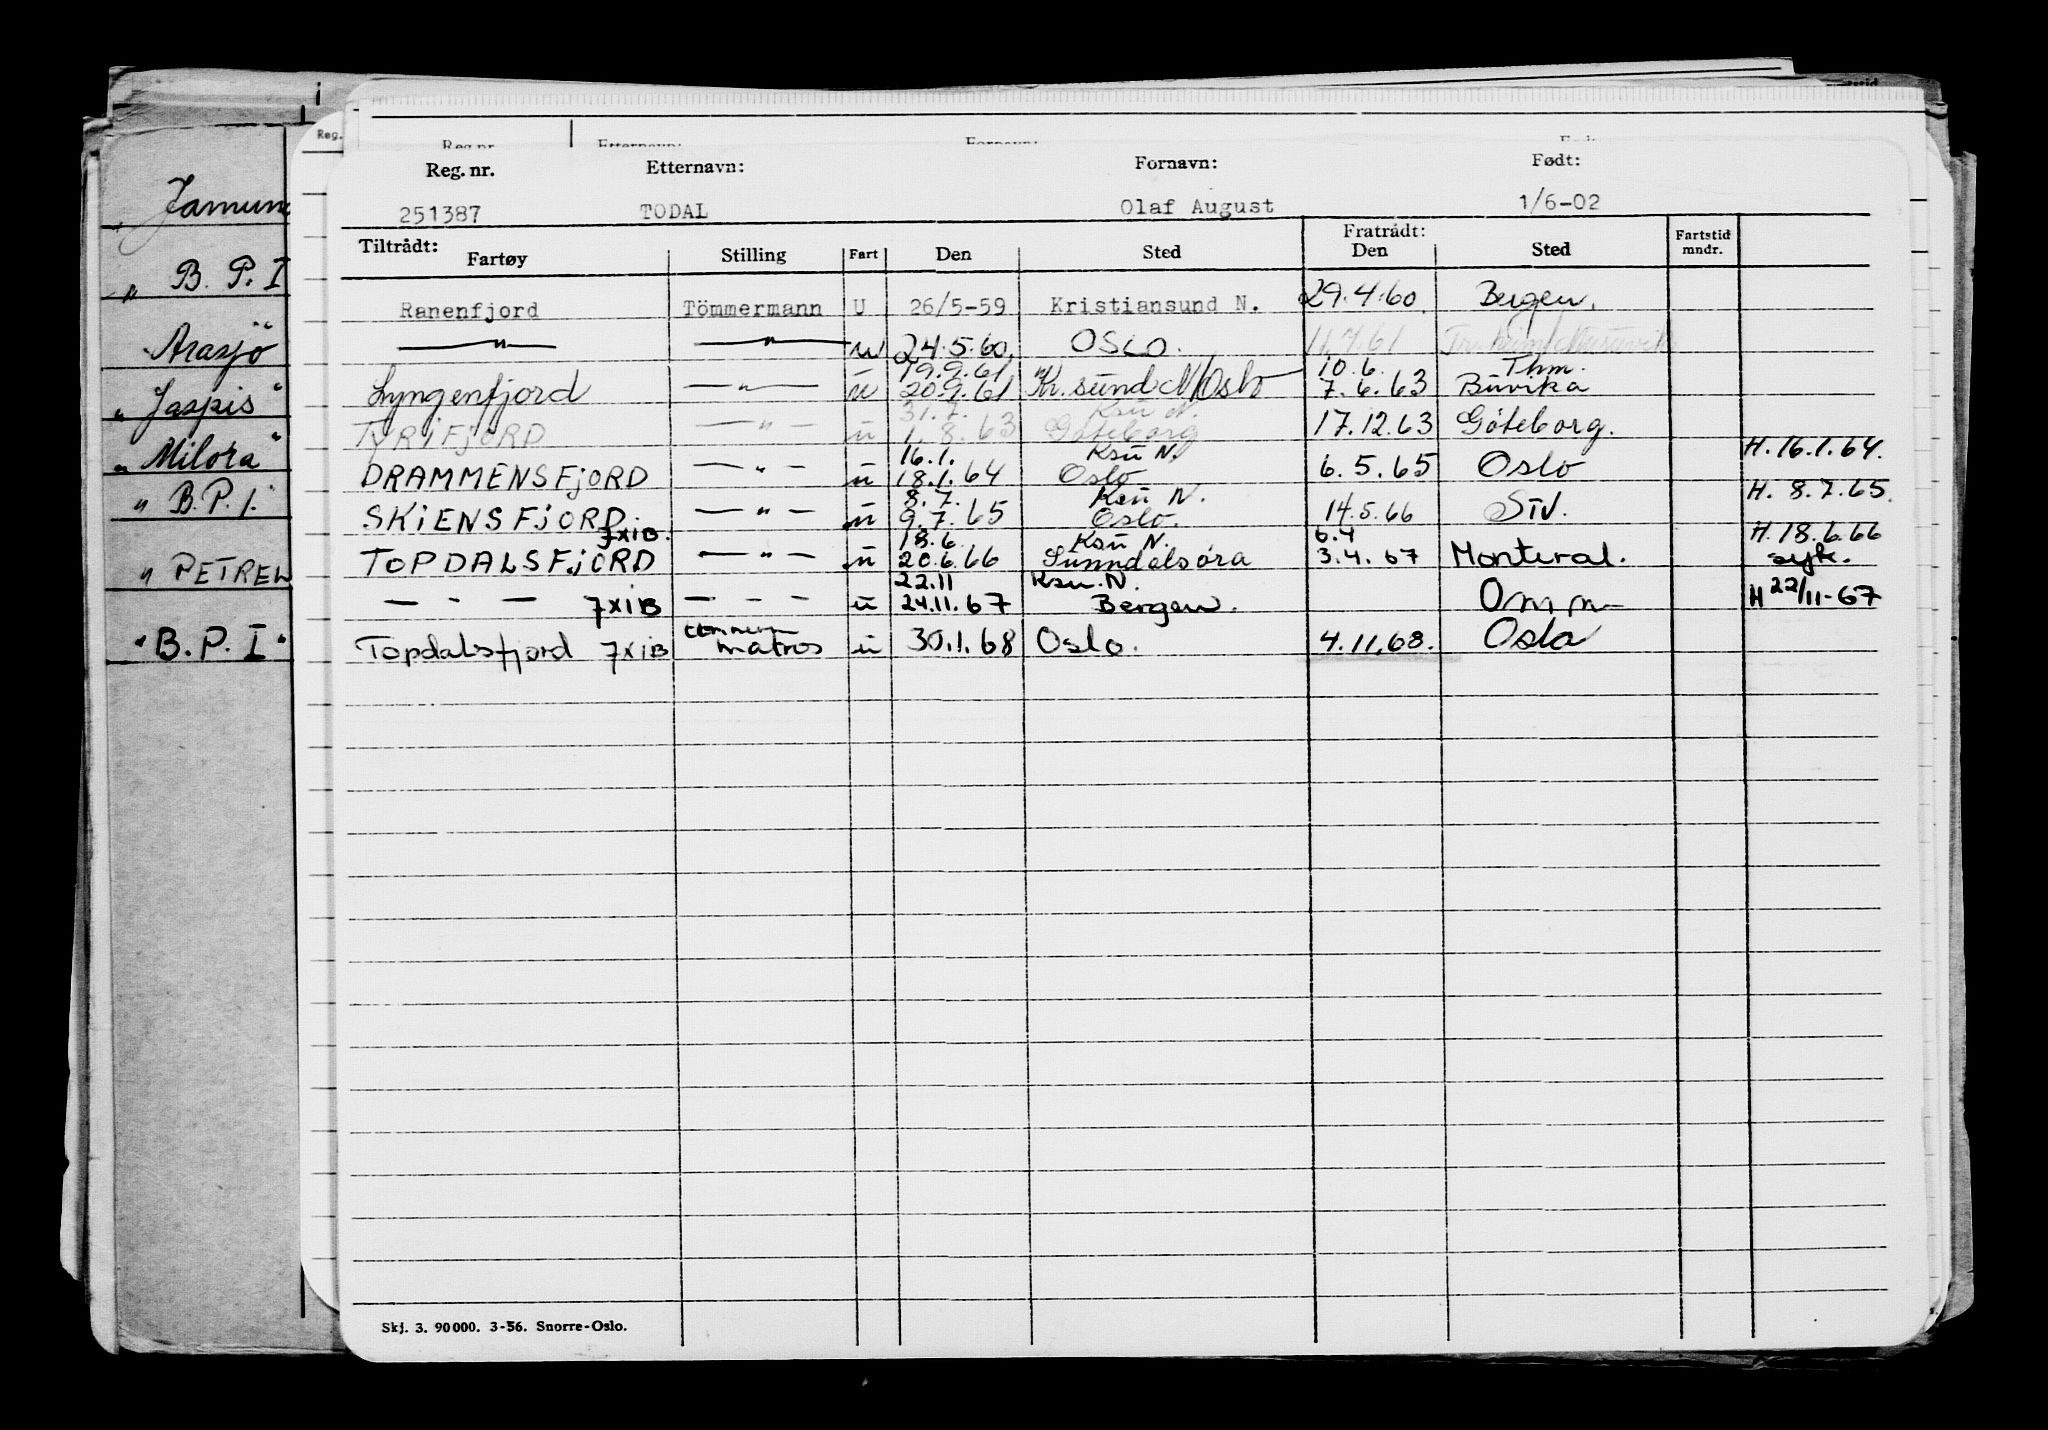 Reg. nr. Etternavn: Fornavn: Født:
251387 TODAL Olaf August 1/6-02
Tiltrådt: Fratrådt:
Fartøy Stilling Fart Den Sted Den Sted Fartstid mndr.
Ranenfjord Tömmermann U 26/5-59 Kristiansund N. 29.4.60. Bergen.
— " — — " — u 24.5.60. OSLO. 11.7.61
19.9.61 10.6. Thm.
Lyngenfjord — " — u 20.9.61 Kr.sund N/Oslo 7.6.63 Buvika
31.7. Ksu N.
TYRIFJORD — " — u 1.8.63 Göteborg 17.12.63 Göteborg.
16.1. Ksu N. H. 16.1.64.
DRAMMENSFJORD — " — u 18.1.64 Oslo 6.5.65 Oslo
8.7. Ksu N. H. 8.7.65.
SKIENSFJORD. — " — u 9.7.65 Oslo. 14.5.66
7XIB. 18.6. Ksu N. 6.4 H. 18.6.66
TOPDALSFJORD — " — u 20.6.66 Sunndalsöra 3.4.67 Monteral. syk.
22.11 Ksu. N.
— - — 7XIB — - — - u 24.11.67 Bergen. Omm H 22/11-67
Topdalsfjord 7XIB matros u 30.1.68 Oslo. 4.11.68. Oslo
Skj. 3. 90 000. 3-56. Snorre-Oslo.
Reg.
" B. P. I
Arasjö"
" Jaspis"
" Milora"
" B.P.I.
" PETREL
"B. P. I"